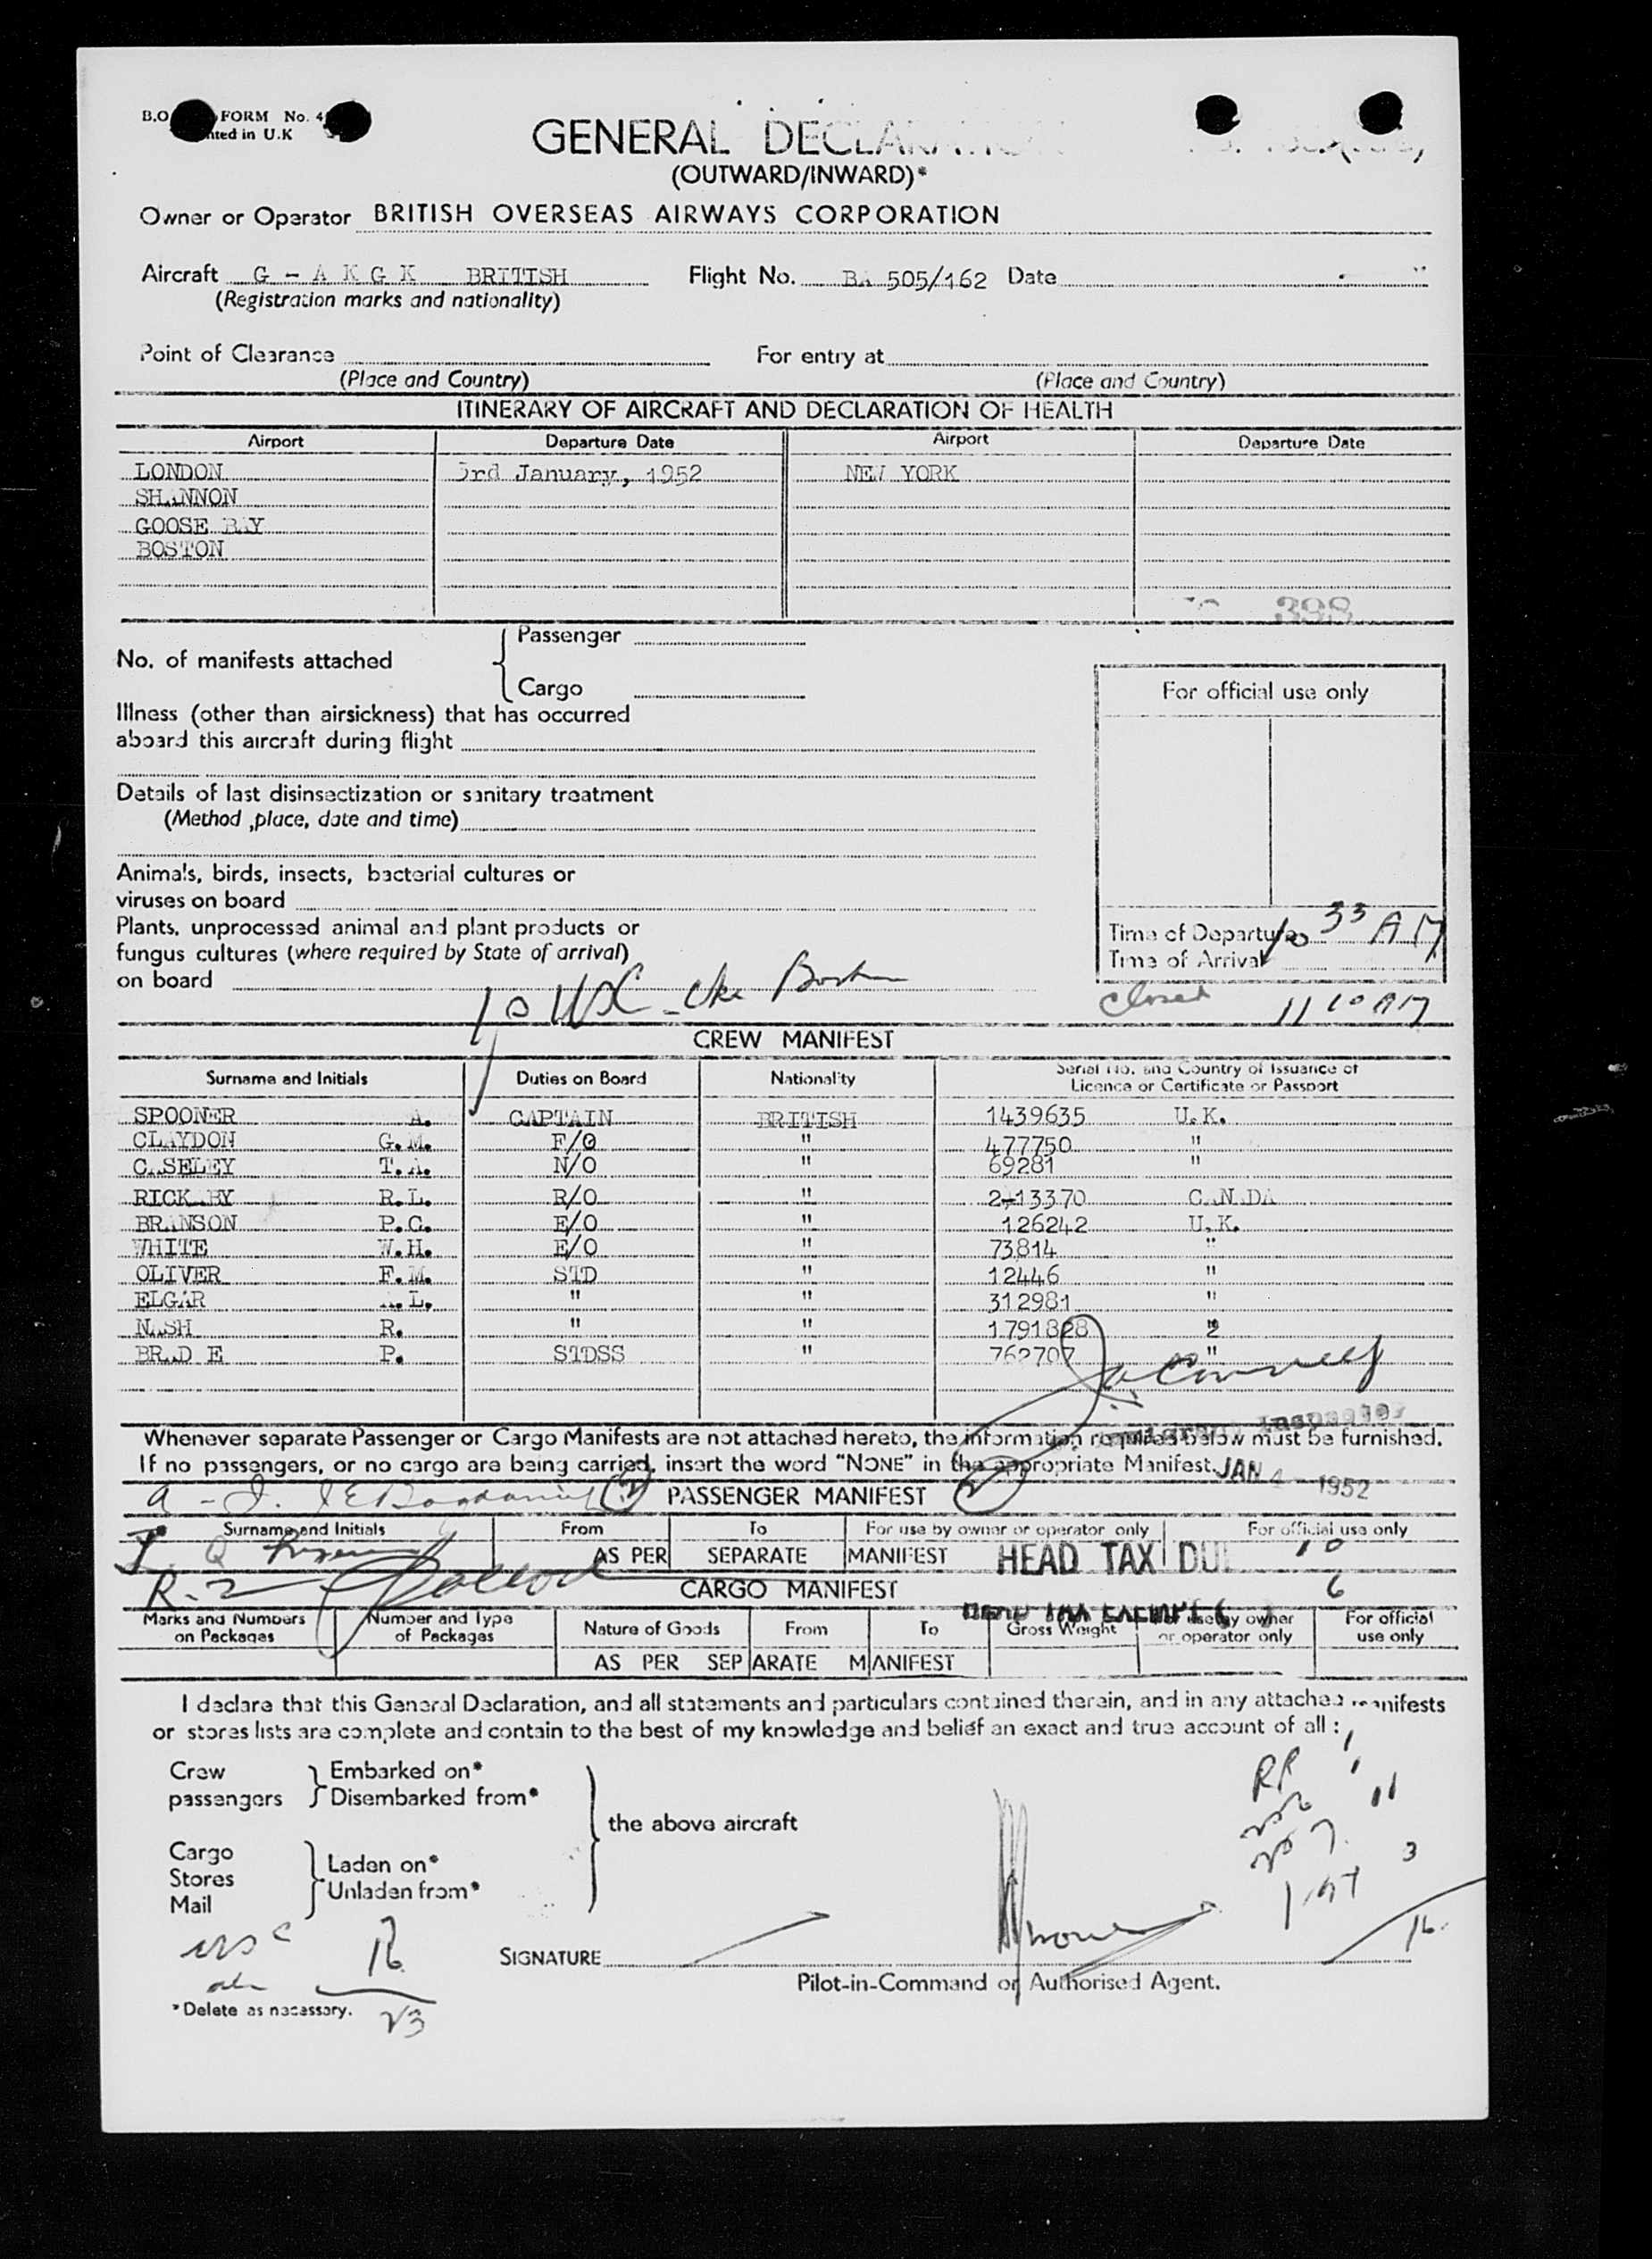 B.O FORM No. 4
nted in U.K
GENERAL DECLARATION
(OUTWARD/INWARD)*
Owner or Operator BRITISH OVERSEAS AIRWAYS CORPORATION
Aircraft G - A K G K BRITISH Flight No. BA 505/162 Date
(Registration marks and nationality)
Point of Clearance For entry at
(Place and Country) (Place and Country)
ITINERARY OF AIRCRAFT AND DECLARATION OF HEALTH
Airport Departure Date Airport Departure Date
LONDON 3rd January, 1952 NEW YORK
SHANNON
GOOSE BAY
BOSTON
398
No. of manifests attached { Passenger
Cargo
For official use only
Illness (other than airsickness) that has occurred
aboard this aircraft during flight
Details of last disinsectization or sanitary treatment
(Method ,place, date and time)
Animals, birds, insects, bacterial cultures or
viruses on board
Plants, unprocessed animal and plant products or
fungus cultures (where required by State of arrival)
on board
Time of Departure 10 33 AM
Time of Arrival
10 USC - Boston
closed 11 10 AM
CREW MANIFEST
Surname and Initials Duties on Board Nationality Serial No. and Country of Issuance of
Licence or Certificate or Passport
SPOONER A. CAPTAIN BRITISH 1439635 U.K.
CLAYDON G.M. F/O " 477750 "
CASELEY T.A. N/O " 69281 "
RICKABY R.L. R/O " 2-13370 CANADA
BRANSON P.C. E/O " 126242 U.K.
WHITE W.H. E/O " 73814 "
OLIVER F.M. STD " 12446 "
ELGAR A.L. " " 312981 "
NASH R. " " 1791828 "
BRAD E P. STDSS " 762707 "
Immigrant Inspector
Whenever separate Passenger or Cargo Manifests are not attached hereto, the information required below must be furnished.
If no passengers, or no cargo are being carried, insert the word "NONE" in the appropriate Manifest.
JAN 4 - 1952
PASSENGER MANIFEST
Surname and Initials From To For use by owner or operator only For official use only
AS PER SEPARATE MANIFEST HEAD TAX DUE 10
R-2
CARGO MANIFEST 6
HEAD TAX EXEMPT
Marks and Numbers Number and Type Nature of Goods From To Gross Weight For use by owner For official
on Packages of Packages or operator only use only
AS PER SEPARATE MANIFEST
I declare that this General Declaration, and all statements and particulars contained therein, and in any attached manifests
or stores lists are complete and contain to the best of my knowledge and belief an exact and true account of all :
Crew } Embarked on*
passengers Disembarked from*
the above aircraft
Cargo
Stores } Laden on*
Mail Unladen from*
RP
11
3
16
USC
16
SIGNATURE
Pilot-in-Command or Authorised Agent.
*Delete as necessary.
23